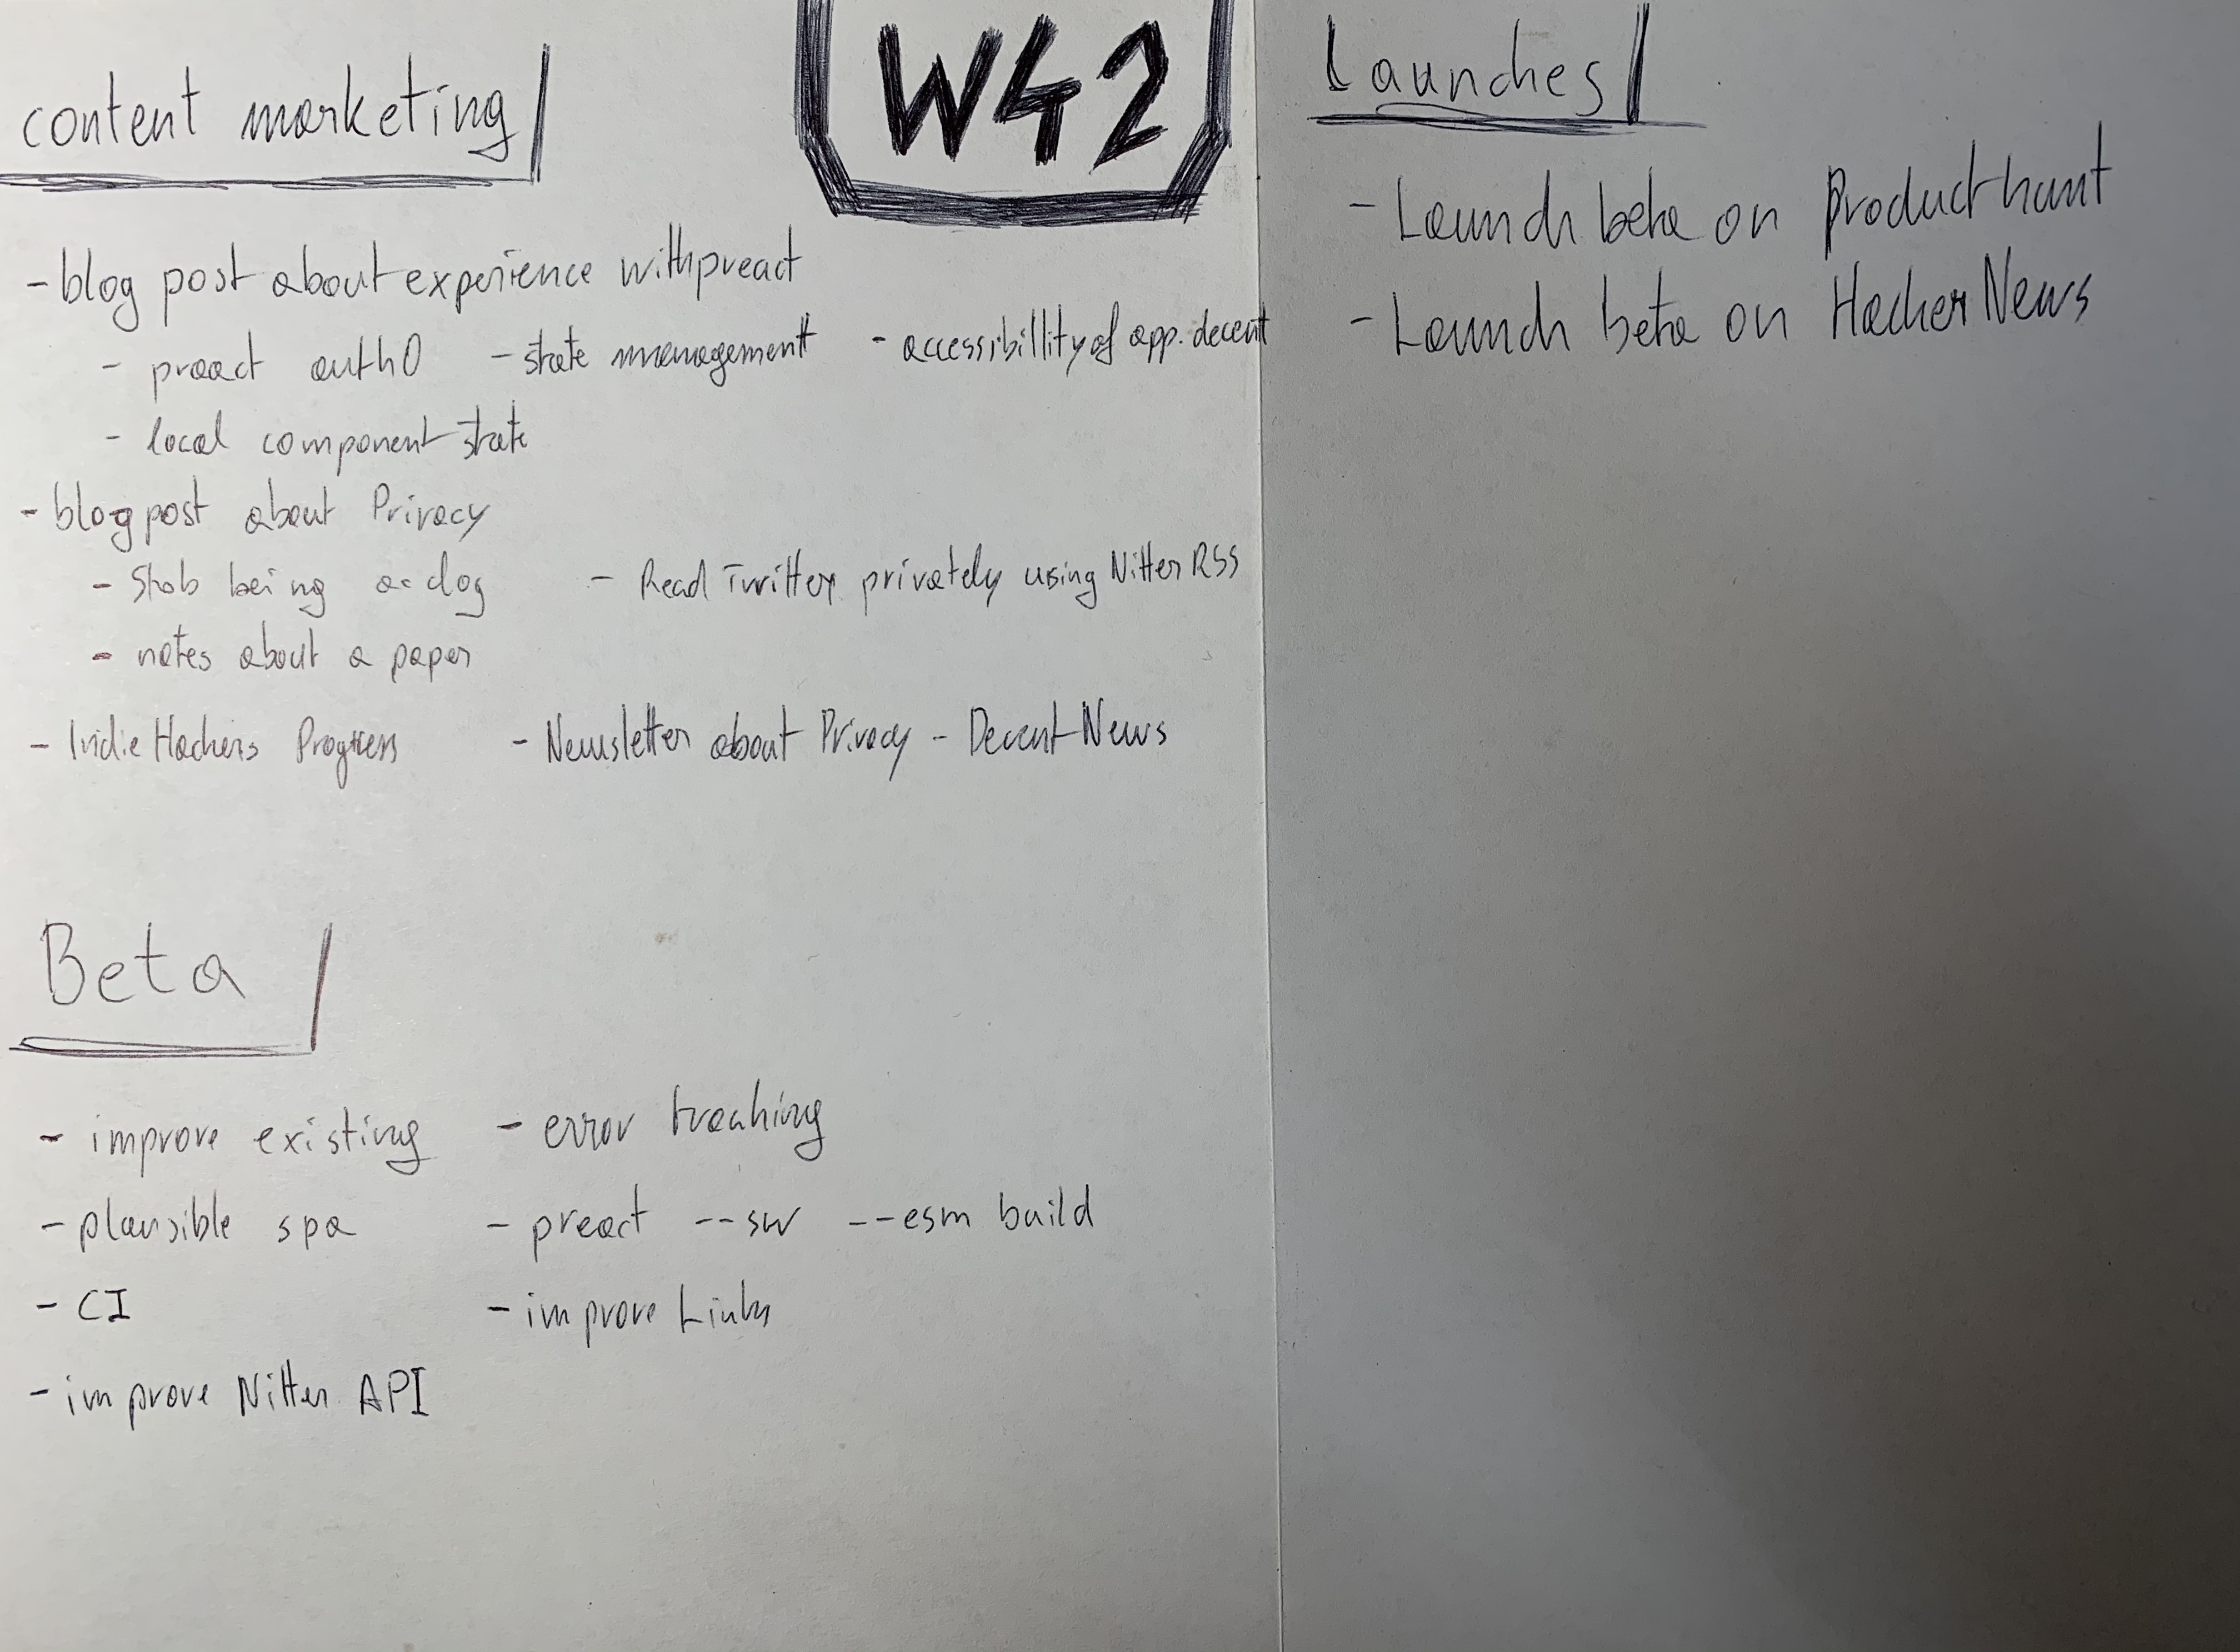 W42
content marketing
- blog post about experience with preact
- preact auth0 - state management - accessibillity of app.decent
- local component state
- blog post about Privacy
- being a dog - Read Twitter privately using Nitter RSS
- notes about a paper
- Indie Hackers Progress - Newsletter about Privacy - Decent News
Beta
- improve existing - error tracking
- plausible spa - preact --sw --esm build
- CI - improve Links
- improve Nitter API
Launches
- Launch beta on Product hunt
- Launch beta on Hacker News